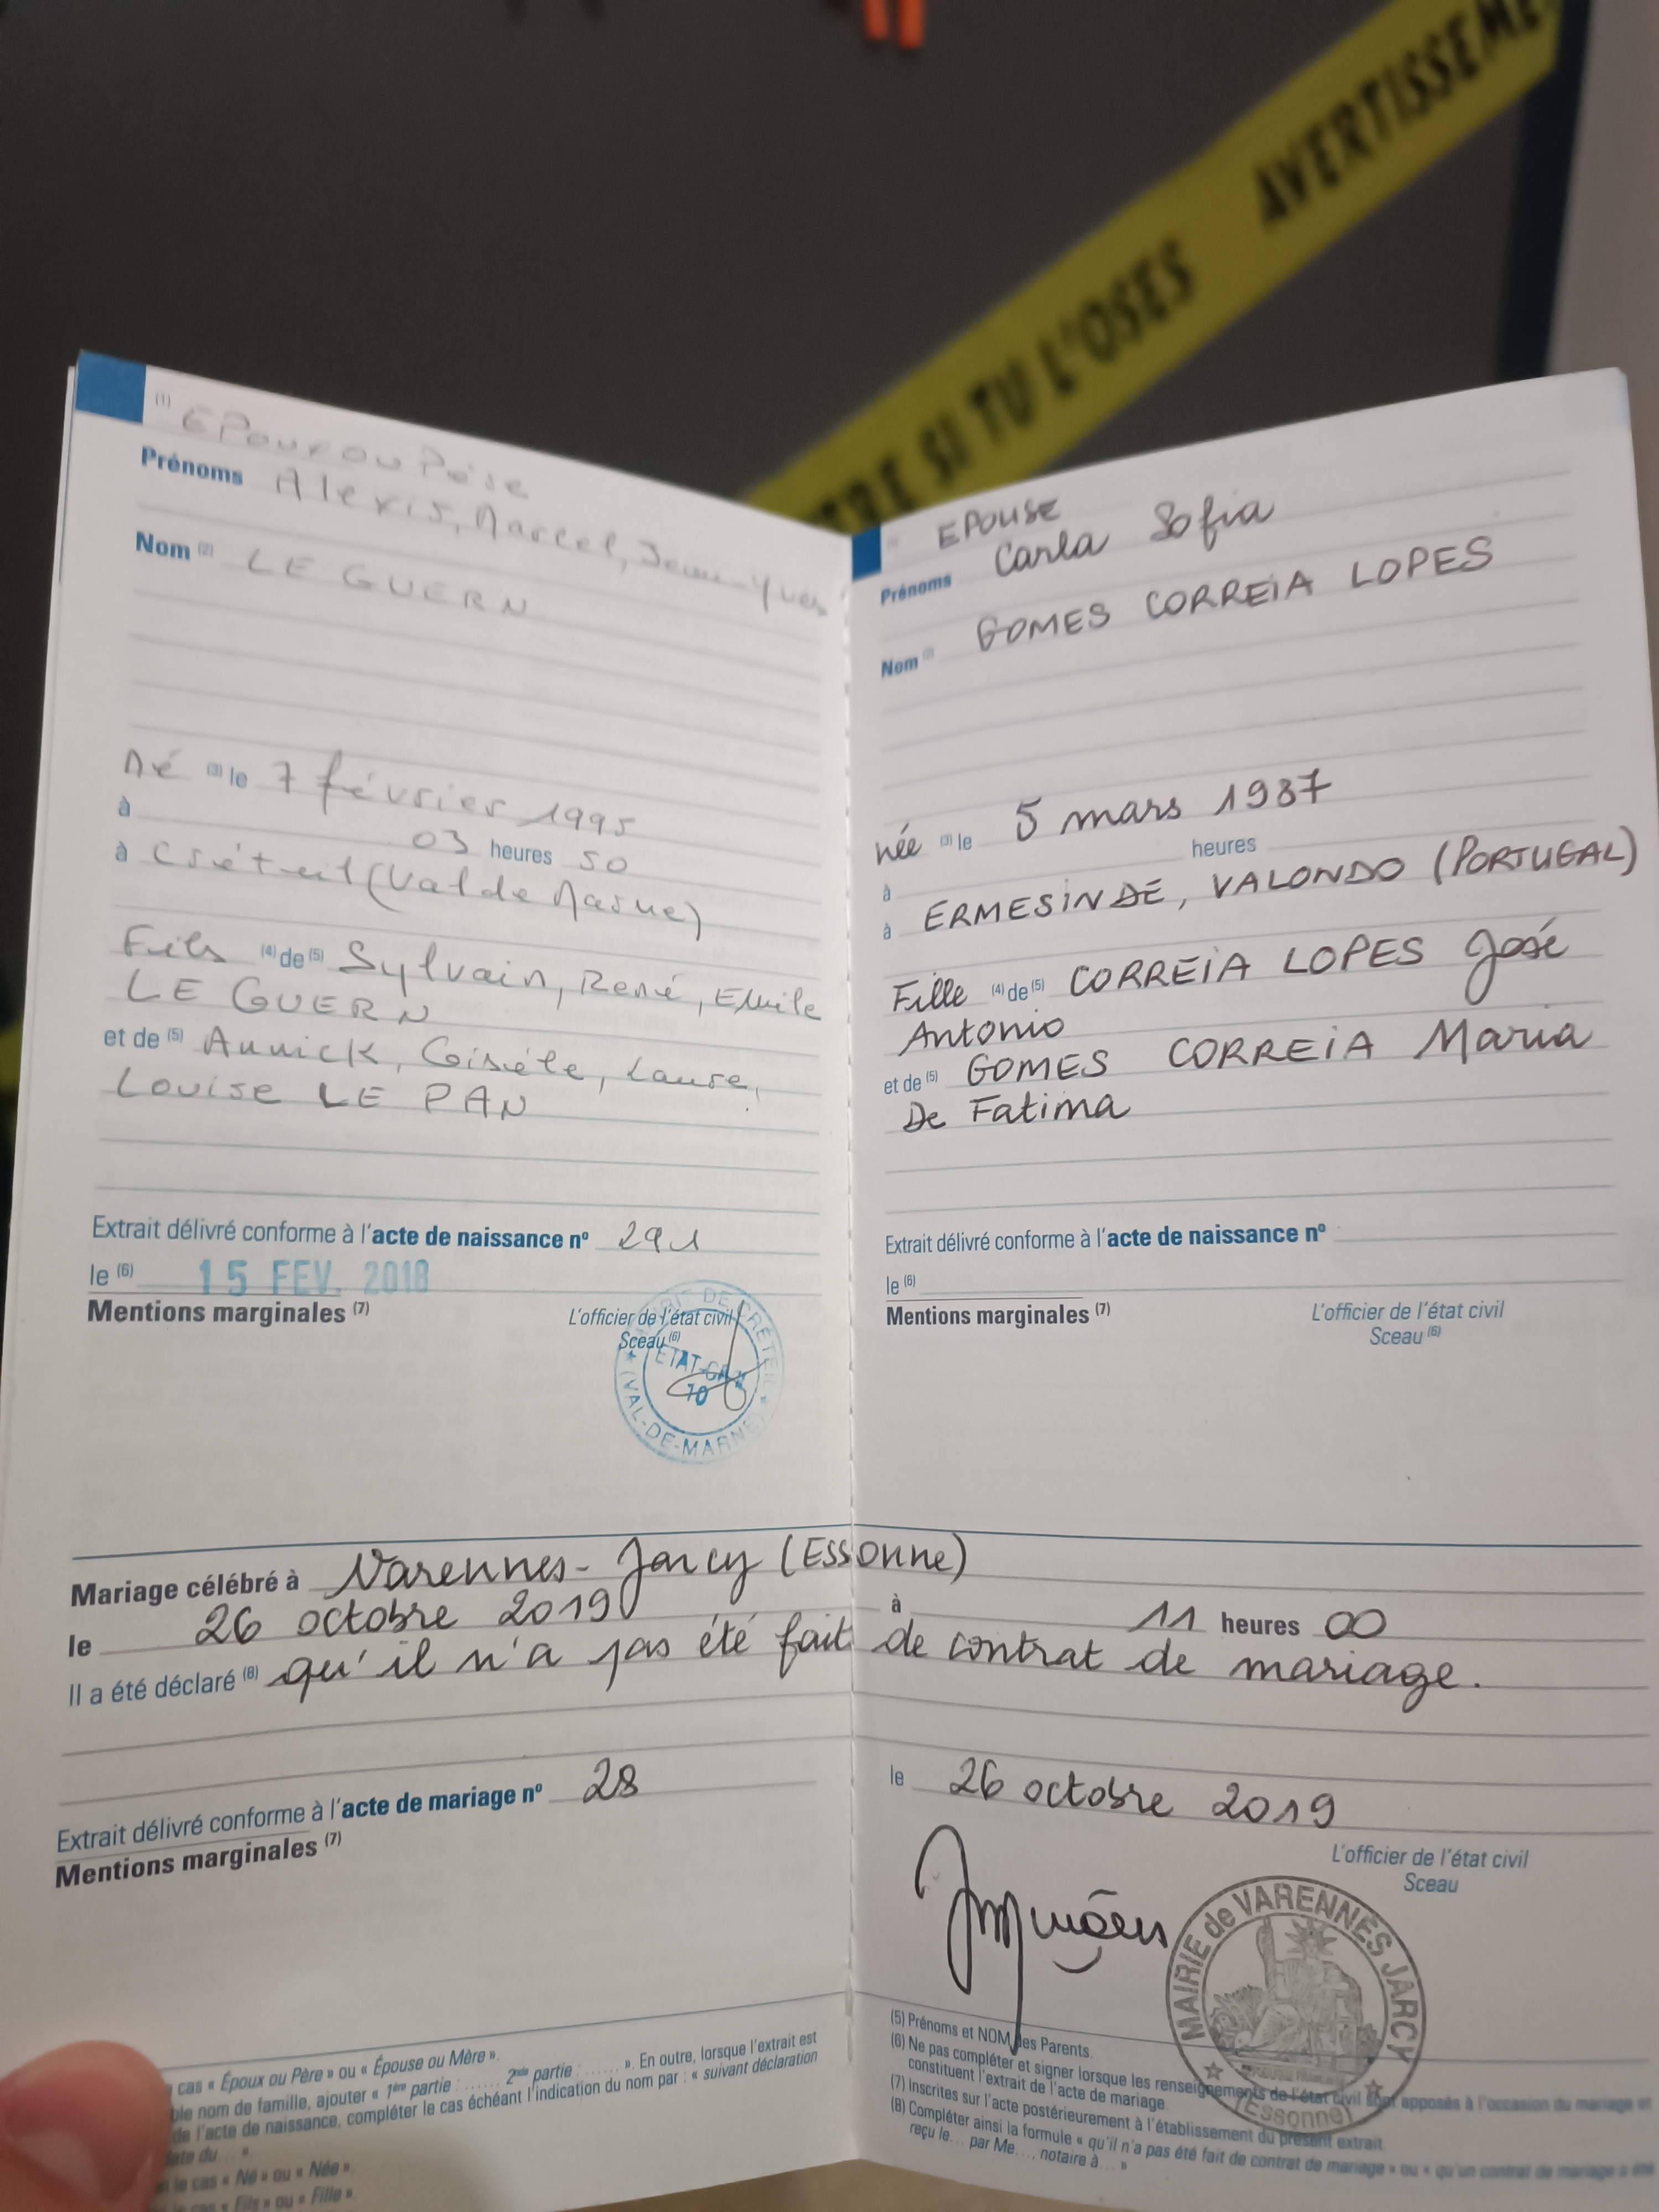 AVERTISSEME
TRE SI TU L'OSES
(1)
EPoux ou Père
Prénoms Alexis, Marcel, Jean-Yves
Nom (2) LE GUERN
Né (3) le 7 février 1995
à 03 heures 50
à Créteil (Val de Marne)
Fils (4) de (5) Sylvain, René, Emile
LE GUERN
et de (5) Annick, Gisèle, Laure,
Louise LE PAN
Extrait délivré conforme à l'acte de naissance nº 291
le (6) 15 FEV. 2018
Mentions marginales (7)
L'officier de l'état civil
Sceau (6)
DE CRÉTEIL
ETAT-
10
(VAL-DE-MARNE)
EPOUSE
Prénoms Carla Sofia
Nom GOMES CORREIA LOPES
née (3) le 5 mars 1987
à heures
à ERMESINDE, VALONDO (PORTUGAL)
Fille (4) de (5) CORREIA LOPES José
Antonio
et de (5) GOMES CORREIA Maria
De Fatima
Extrait délivré conforme à l'acte de naissance nº
le (6)
Mentions marginales (7)
L'officier de l'état civil
Sceau (6)
Mariage célébré à Varennes-Jarcy (Essonne)
le 26 octobre 2019 à 11 heures 00
Il a été déclaré (8) qu'il n'a pas été fait de contrat de mariage.
Extrait délivré conforme à l'acte de mariage nº 28
le 26 octobre 2019
Mentions marginales (7)
L'officier de l'état civil
Sceau
MAIRIE de VARENNES JARCY
(Essonne)
cas « Époux ou Père » ou « Épouse ou Mère ».
ble nom de famille, ajouter « 1ère partie : ...... 2nde partie : ...... ». En outre, lorsque l'extrait est
de l'acte de naissance, compléter le cas échéant l'indication du nom par : « suivant déclaration
date du... ».
le cas « Né » ou « Née ».
le cas « Fils » ou « Fille ».
(5) Prénoms et NOM des Parents.
(6) Ne pas compléter et signer lorsque les renseignements de l'état civil sont apposés à l'occasion du mariage et
constituent l'extrait de l'acte de mariage.
(7) Inscrites sur l'acte postérieurement à l'établissement du présent extrait.
(8) Compléter ainsi la formule « qu'il n'a pas été fait de contrat de mariage » ou « qu'un contrat de mariage a été
reçu le... par Me..., notaire à... »